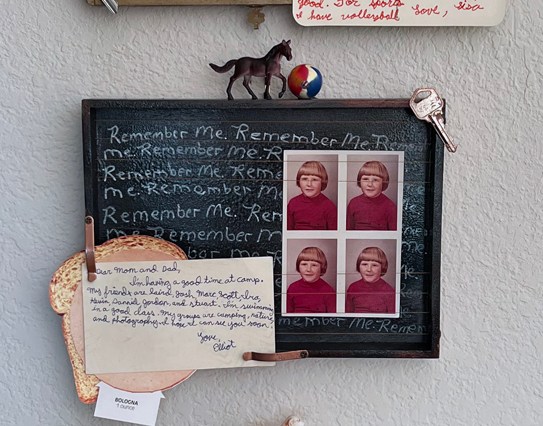 good. For sports
I have volleyball Love, Lisa
Remember Me. Remember Me. Reme
me. Remember Me. R
Remember Me. Reme
me. Remember Me.
Remember Me. Re
me. Remember M
Dear Mom and Dad,
I'm having a good time at camp.
My friends are Laird, Josh, Marc, Scott, Ira,
Kevin, Daniel, Gordon, and Stuart. I'm swimming
in a good class. My groups are camping, nature
and photography. I hope I can see you soon.
Love,
Elliot
ember Me. Remem
BOLOGNA
1 ounce